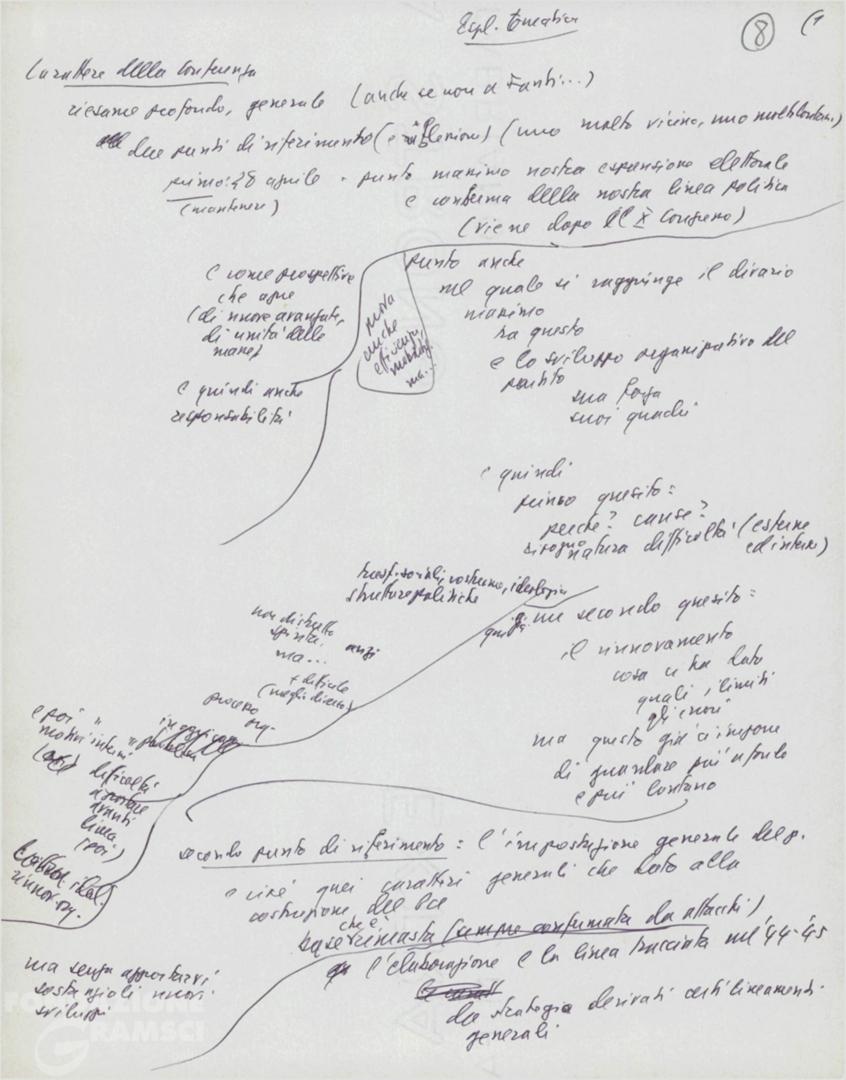 Espl. tematica
8 (1
Carattere della Conferenza
riesame profondo, generale (anche se non a Fanti...)
due punti di riferimento (e riflessione) (uno molto vicino, uno molto lontano)
primo: 28 aprile - punto massimo nostra espansione elettorale
(mantenere)
e conferma della nostra linea politica
(viene dopo il X Congresso)
punto anche
nel quale si raggiunge il divario
massimo
tra questo
e lo sviluppo organizzativo del
partito
sua forza
suoi quadri
prova
anche
efficienza,
ma...
e come prospettive
che apre
(di nuove avanzate,
di unità delle
masse)
e quindi anche
responsabilità
e quindi
primo quesito:
perché? cause?
bisogno
natura difficoltà (esterne
ed interne)
trasf. sociali, costume, ideologia
strutture politiche
quindi
un secondo quesito:
il rinnovamento
cosa ci ha dato
quali i limiti
gli errori
ma questo già ci impone
di guardare più a fondo
e più lontano
non distrutto
spinta,
anzi
ma...
+ difficile
(meglio diverso)
processo
org.
e poi "
motivi interni
difficoltà
a portare
avanti
linea
(poi)
rinnov. org.
secondo punto di riferimento: l'impostazione generale del p.
e cioè quei caratteri generali che dato alla
costruzione del Pci
che è
base rimasta (sempre confermata da attacchi)
l'elaborazione e la linea tracciata nel '44-'45
da strategia derivati certi lineamenti
generali
ma senza apportarvi
sostanziali nuovi
sviluppi
FONDAZIONE
GRAMSCI